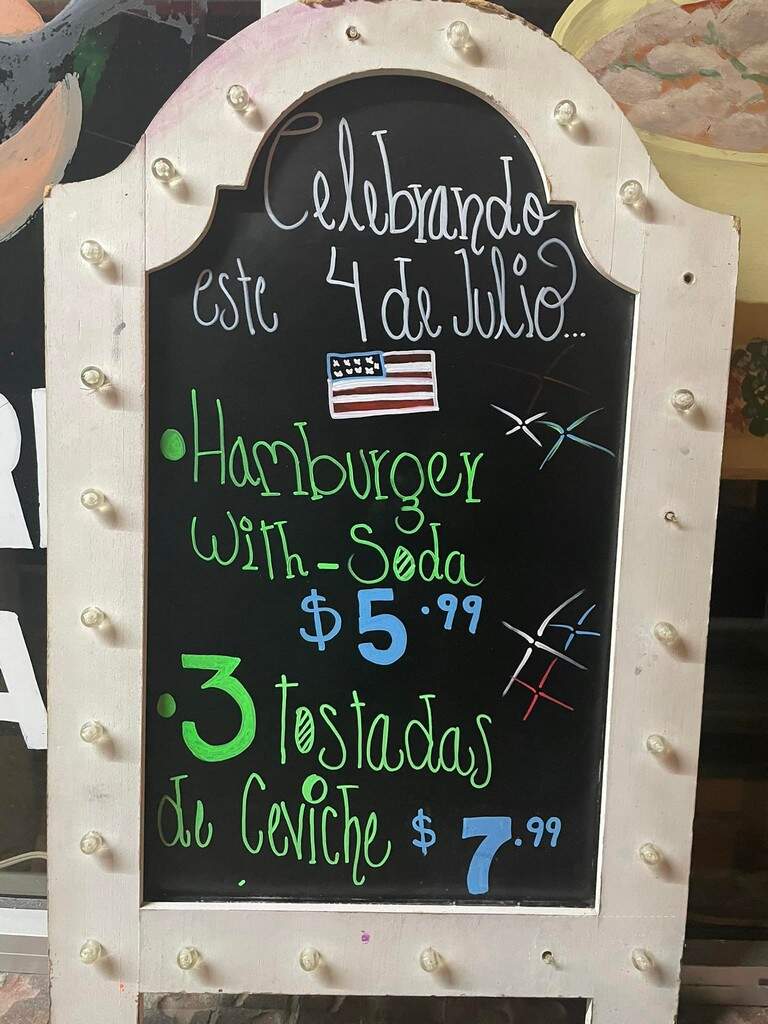 Celebrando
este 4 de Julio...
• Hamburger
With - Soda
$5.99
• 3 tostadas
de Ceviche $7.99
R
A